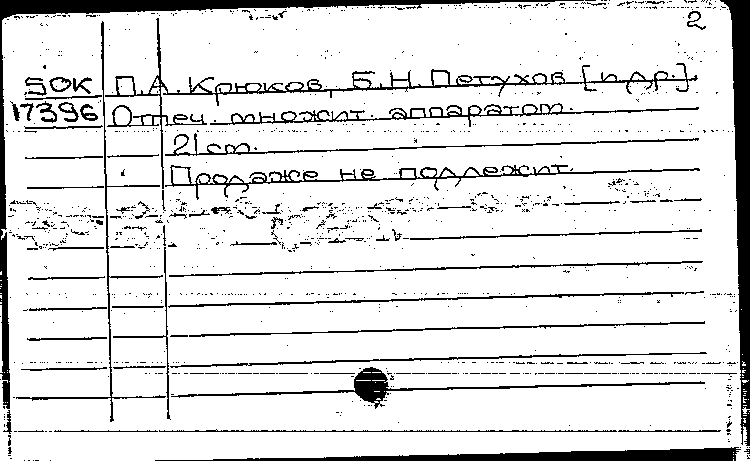 2
SOK П.А. Крюков, Б.Н. Петухов [и др.].
17396 Отпеч. множит. аппаратом.
21 cm.
Продаже не подлежит.